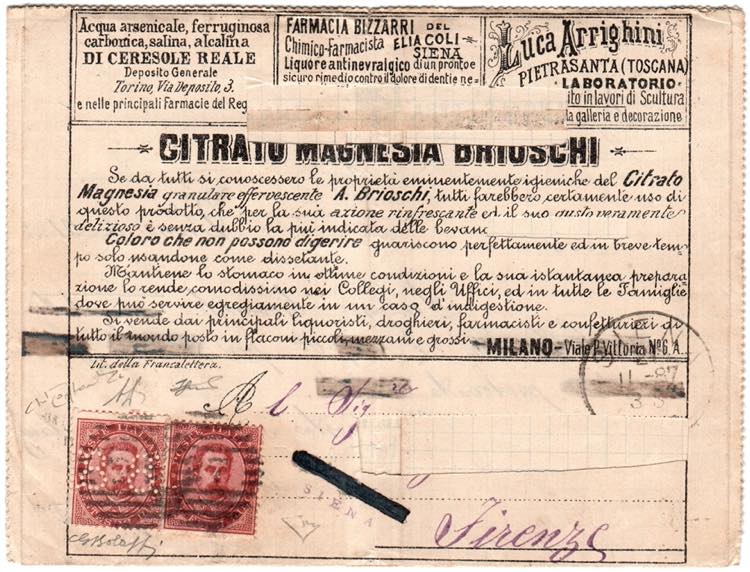 Acqua arsenicale, ferruginosa
carbonica, salina, alcalina
DI CERESOLE REALE
Deposito Generale
Torino, Via Deposito, 3.
e nelle principali Farmacie del Reg
FARMACIA BIZZARRI DEL
Chimico-farmacista ELIA COLI-
SIENA
Liquore antinevralgico di un pronto e
sicuro rimedio contro il dolore di denti e ne=
Luca Arrighini
PIETRASANTA (TOSCANA)
LABORATORIO
ito in lavori di Scultura
la galleria e decorazione
CITRATO MAGNESIA BRIOSCHI
Se da tutti si conoscessero le proprietà eminentemente igieniche del Citrato
Magnesia granulare effervescente A. Brioschi, tutti farebbero certamente uso di
questo prodotto, che per la sua azione rinfrescante ed il suo gusto veramente
delizioso è senza dubbio la più indicata delle bevan
Coloro che non possono digerire guariscono perfettamente ed in breve tem=
po solo usandone come dissetante.
Mantiene lo stomaco in ottime condizioni e la sua istantanea prepara
zione lo rende comodissimo nei Collegi, negli Uffici, ed in tutte le Famiglie
dove può servire egregiamente in un caso d'indigestione.
Si vende dai principali liquoristi, droghieri, farmacisti e confetturieri di
tutto il mondo posto in flaconi piccoli, mezzani e grossi
MILANO - Viale P. Vittoria Nº 6. A.
Lit. della Francalettera.
11-87
3 S
Al Sig
SIENA
Firenze